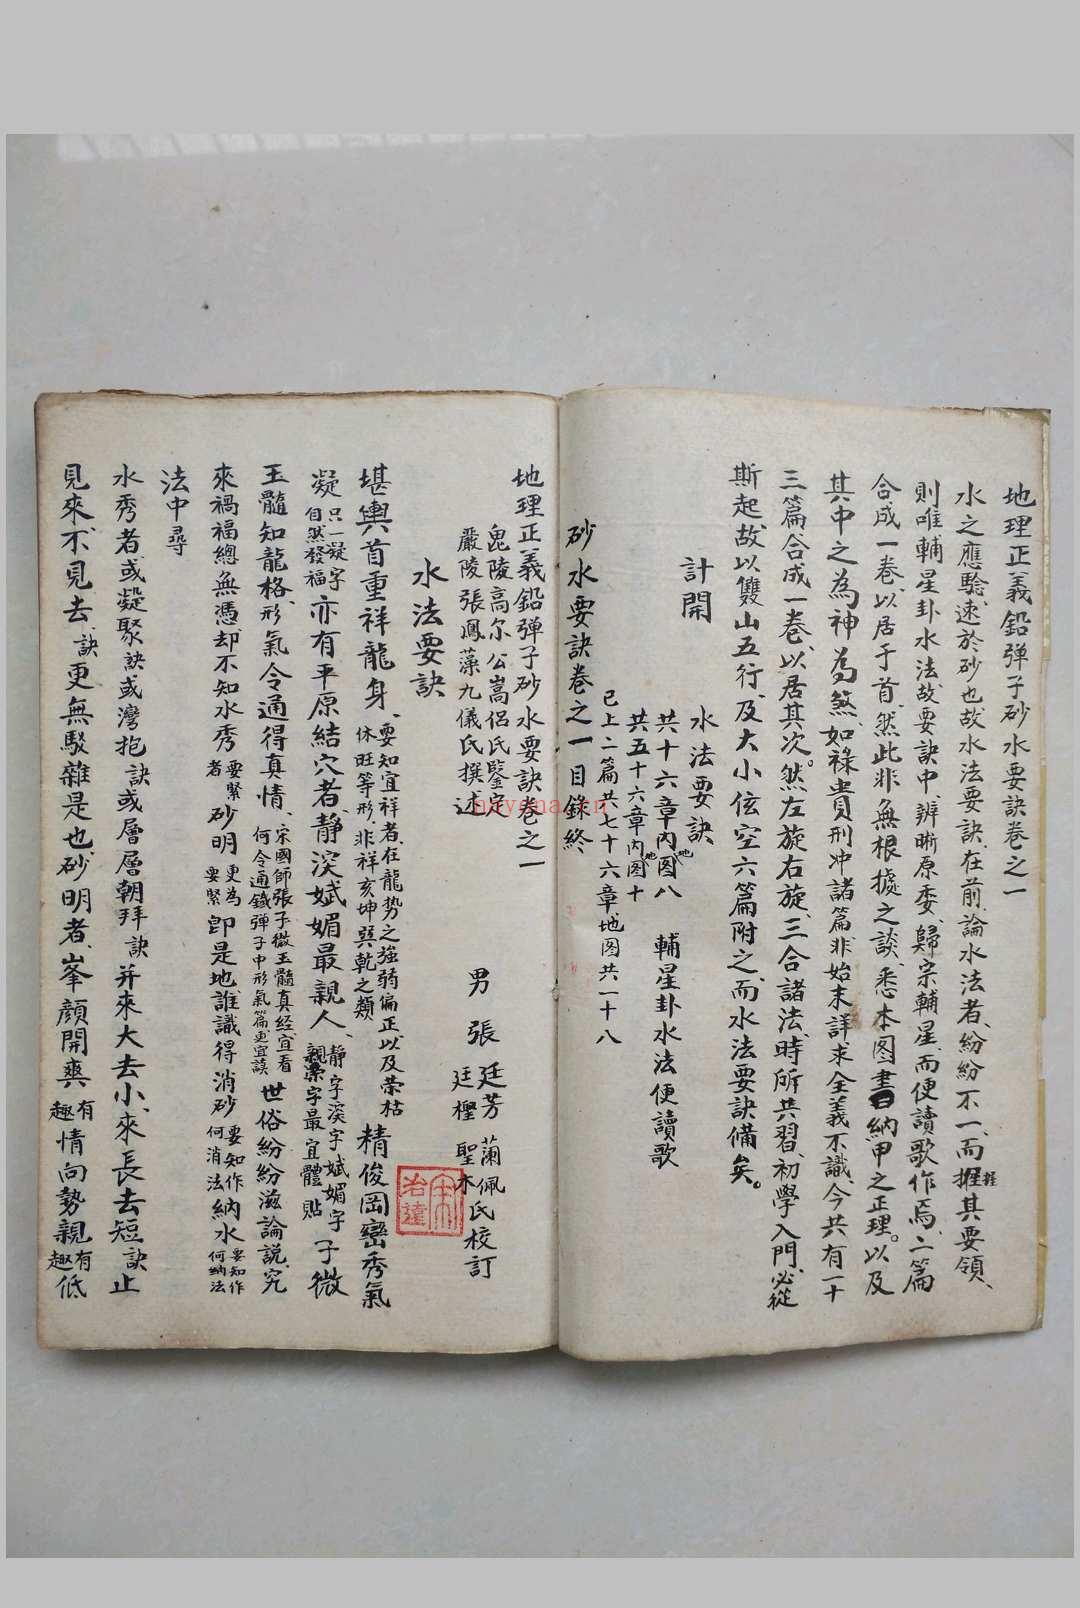 地理正義鉛弹子砂水要訣卷之一
水之應騐速於砂也故水法要訣在前論水法者紛紛不一而握其要領
則唯輔星卦水法故要訣中辨晰原委歸宗輔星而便讀歌作焉二篇
合成一卷以居于首然此非無根據之談悉本图書納甲之正理以及
其中之為神為煞如祿貴刑冲諸篇非始末詳求全義不識今共有一十
三篇合成一卷以居其次然左旋右旋三合諸法時所共習初學入門必從
斯起故以雙山五行及大小佉空六篇附之而水法要訣備矣
計開
水法要訣
共十六章内地图八 輔星卦水法便讀歌
共五十六章内地图十
已上二篇共七十六章地图共一十八
砂水要訣卷之一目錄終
地理正義鉛弹子砂水要訣卷之一
毘陵高尔公嵩侣氏鑒定
嚴陵張鳳藻九儀氏撰述
男 張 廷芳 蘭佩氏校訂
廷樫 聖木
水法要訣
堪輿首重祥龍身要知宜祥者在龍势之强弱偏正以及荣枯
休旺等形非祥亥坤巽乾之類精俊岡巒秀氣
凝只一凝字自然發福亦有平原結穴者静深斌媚最親人静字深字斌媚字
親字最宜體貼子微
玉髓知龍格形氣令通得真情宋國師張子微玉髓真經宜看
何令通鐵彈子中形氣篇更宜讀世俗紛紛滋論説究
來禍福總無憑却不知水秀要緊者砂明更為要緊即是地誰識得消砂要知作何消法納水要知作何納法
法中尋
水秀者或凝聚訣或灣抱訣或層層朝拜訣并來大去小來長去短訣止
見來不見去訣更無駁雜是也砂明者峯顔開爽有趣情向勢親有趣低